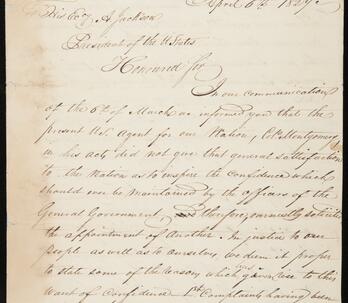 April 6th. 1829.
His Excy. A Jackson
President of the U States
Honoured Sir
In our communication
of the 6th of March we informed you that the
present U.S. Agent for our Nation, Col. Montgomery
in his acts did not give that general satisfaction
to the Nation as to inspire the confidence which
should ever be maintained by the officers of the
General Government, therefore, earnestly solicits
the appointment of Another. In justice to our
people as well as to ourselves, we deem it proper
to state some of the reasons which gave rise to this
want of Confidence 1st Complaints having been